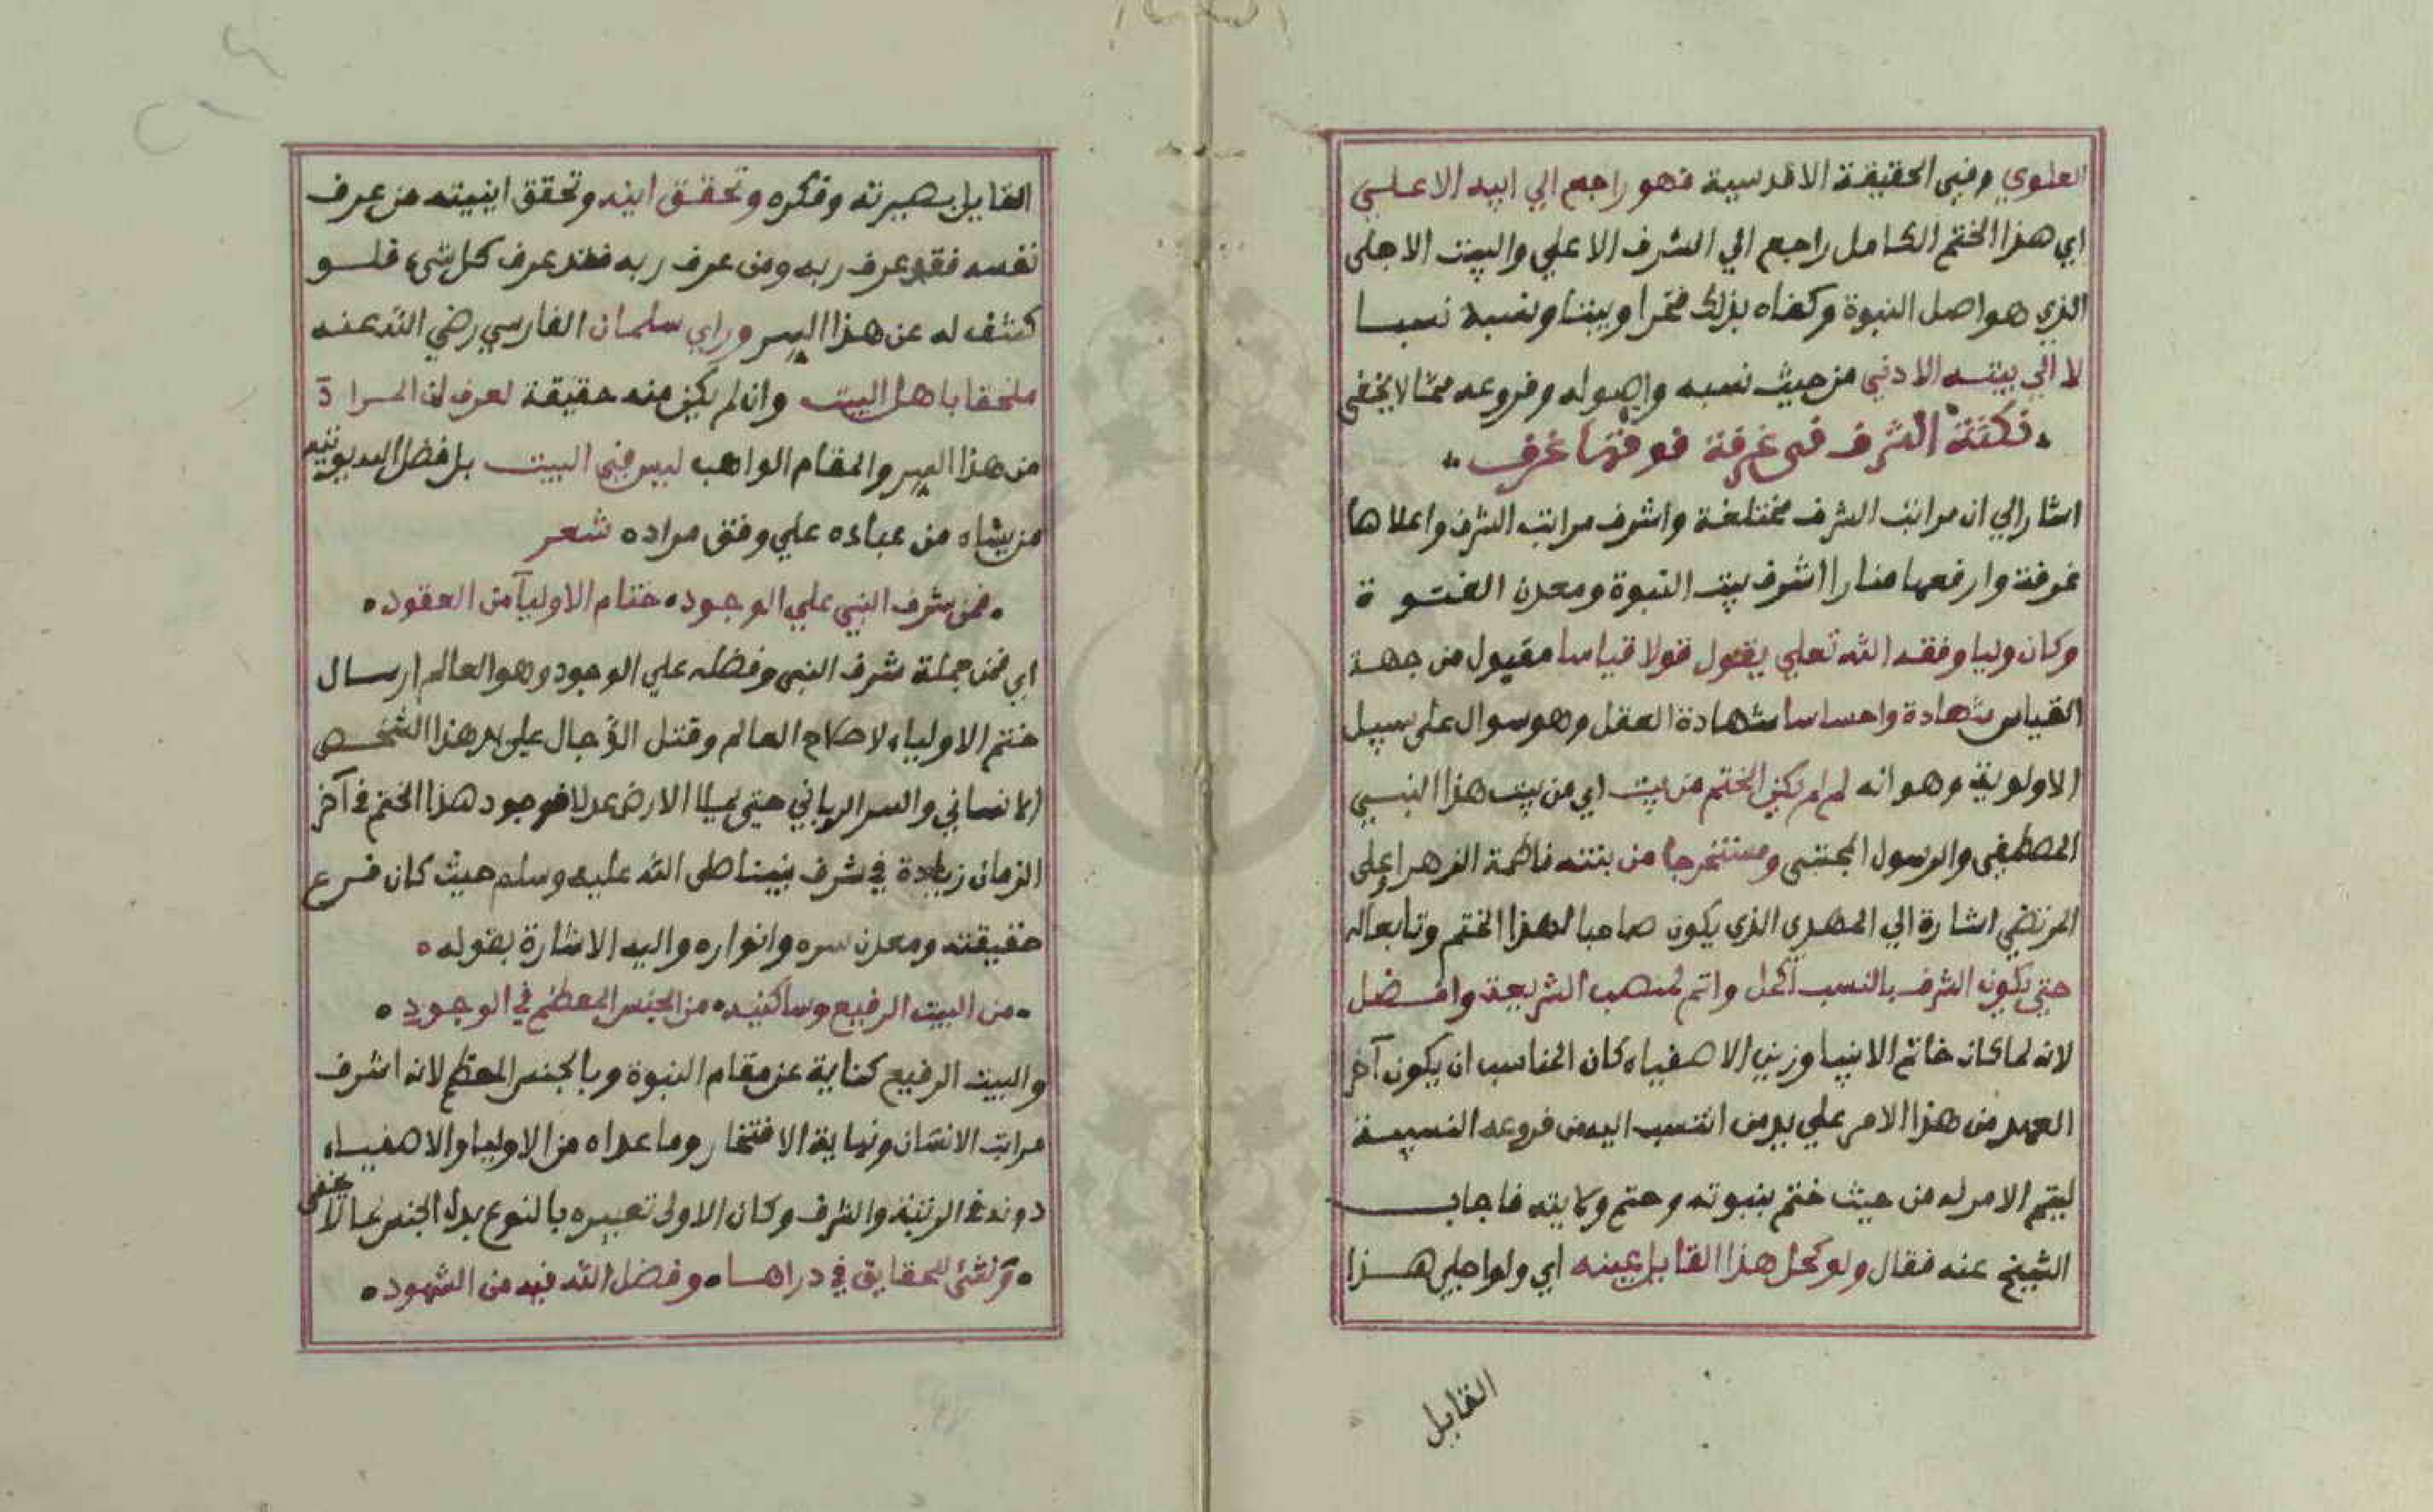 العلوي وفي الحقيقة الاقدسية فهو راجع الي ابيه الاعلي
اي هذا الختم الكامل راجع الي الشرف الاعلي والبيت الاجلي
الذي هو اصل النبوة وكفاه بذلك فخرا وبيتا ونسبة نسبا
لا الي بيته الادني من حيث نسبه واصوله وفروعه مما لا يخفي
نكتة الشرف في غرفة فوقها غرف
اشار الي ان مراتب الشرف مختلفة واشرف مراتب الشرف واعلاها
غرفة وارفعها منارا اشرف بيت النبوة ومعدن الفتوة
وكان وليا وفقه الله تعلي يقول قولا قياسا مقبول من جهة
القياس شهادة واحساسا شهادة العقل وهو سوال علي سبيل
الاولوية وهو انه لم لم يكن الختم من بيت اي من بيت هذا النبي
المصطفي والرسول المجتبي ومستخرجا من بنته فاطمة الزهرا وعلي
المرتضي اشارة الي المهدي الذي يكون صاحبا لهذا الختم وتابعا له
حتي يكون الشرف بالنسب اكمل واتم لمنصب الشريعة وافضل
لانه لما كان خاتم الانبيا وزين الاصفياء كان المناسب ان يكون آخر
العهد من هذا الامر علي يد من انتسب اليه من فروعه النسبية
ليتم الامر له من حيث ختم بنبوته وختم ولايته فاجاب
الشيخ عنه فقال ولو كحل هذا القابل عينه اي ولو اجلي هذا
القابل
القايل بصيرته وفكره وتحقق اينه وتحقق اينيته من عرف
نفسه فقد عرف ربه ومن عرف ربه فقد عرف كل شيء فلو
كشف له عن هذا السر وراي سلمان الفارسي رضي الله عنه
ملحقا باهل البيت وان لم يكن منه حقيقة لعرف ان المراد
من هذا السر والمقام الواهب ليس في البيت بل فضل الله يوتيه
من يشاء من عباده علي وفق مراده شعر
فمن شرف النبي علي الوجود ختام الاوليآ من العقود
اي فمن جملة شرف النبي وفضله علي الوجود وهو العالم ارسال
ختم الاولياء لاصلاح العالم وقتل الدجال علي يد هذا الشخص
الانساني والسر الرباني حتي يملا الارض عدلا فوجود هذا الختم في آخر
الزمان زيادة في شرف نبينا صلي الله عليه وسلم حيث كان فرع
حقيقته ومعدن سره وانواره واليه الاشارة بقوله
من البيت الرفيع وساكنيه من الجنس المعظم في الوجود
والبيت الرفيع كناية عن مقام النبوة وبالجنس المعظم لانه اشرف
مراتب الانسان ونهاية الافتخار وما عداه من الاوليا والاصفياء
دونه في الرتبة والشرف وكان الاولي تعبيره بالنوع بدل الجنس كما لا يخفي
للحقايق في دراها وفضل الله فيه من الشهود